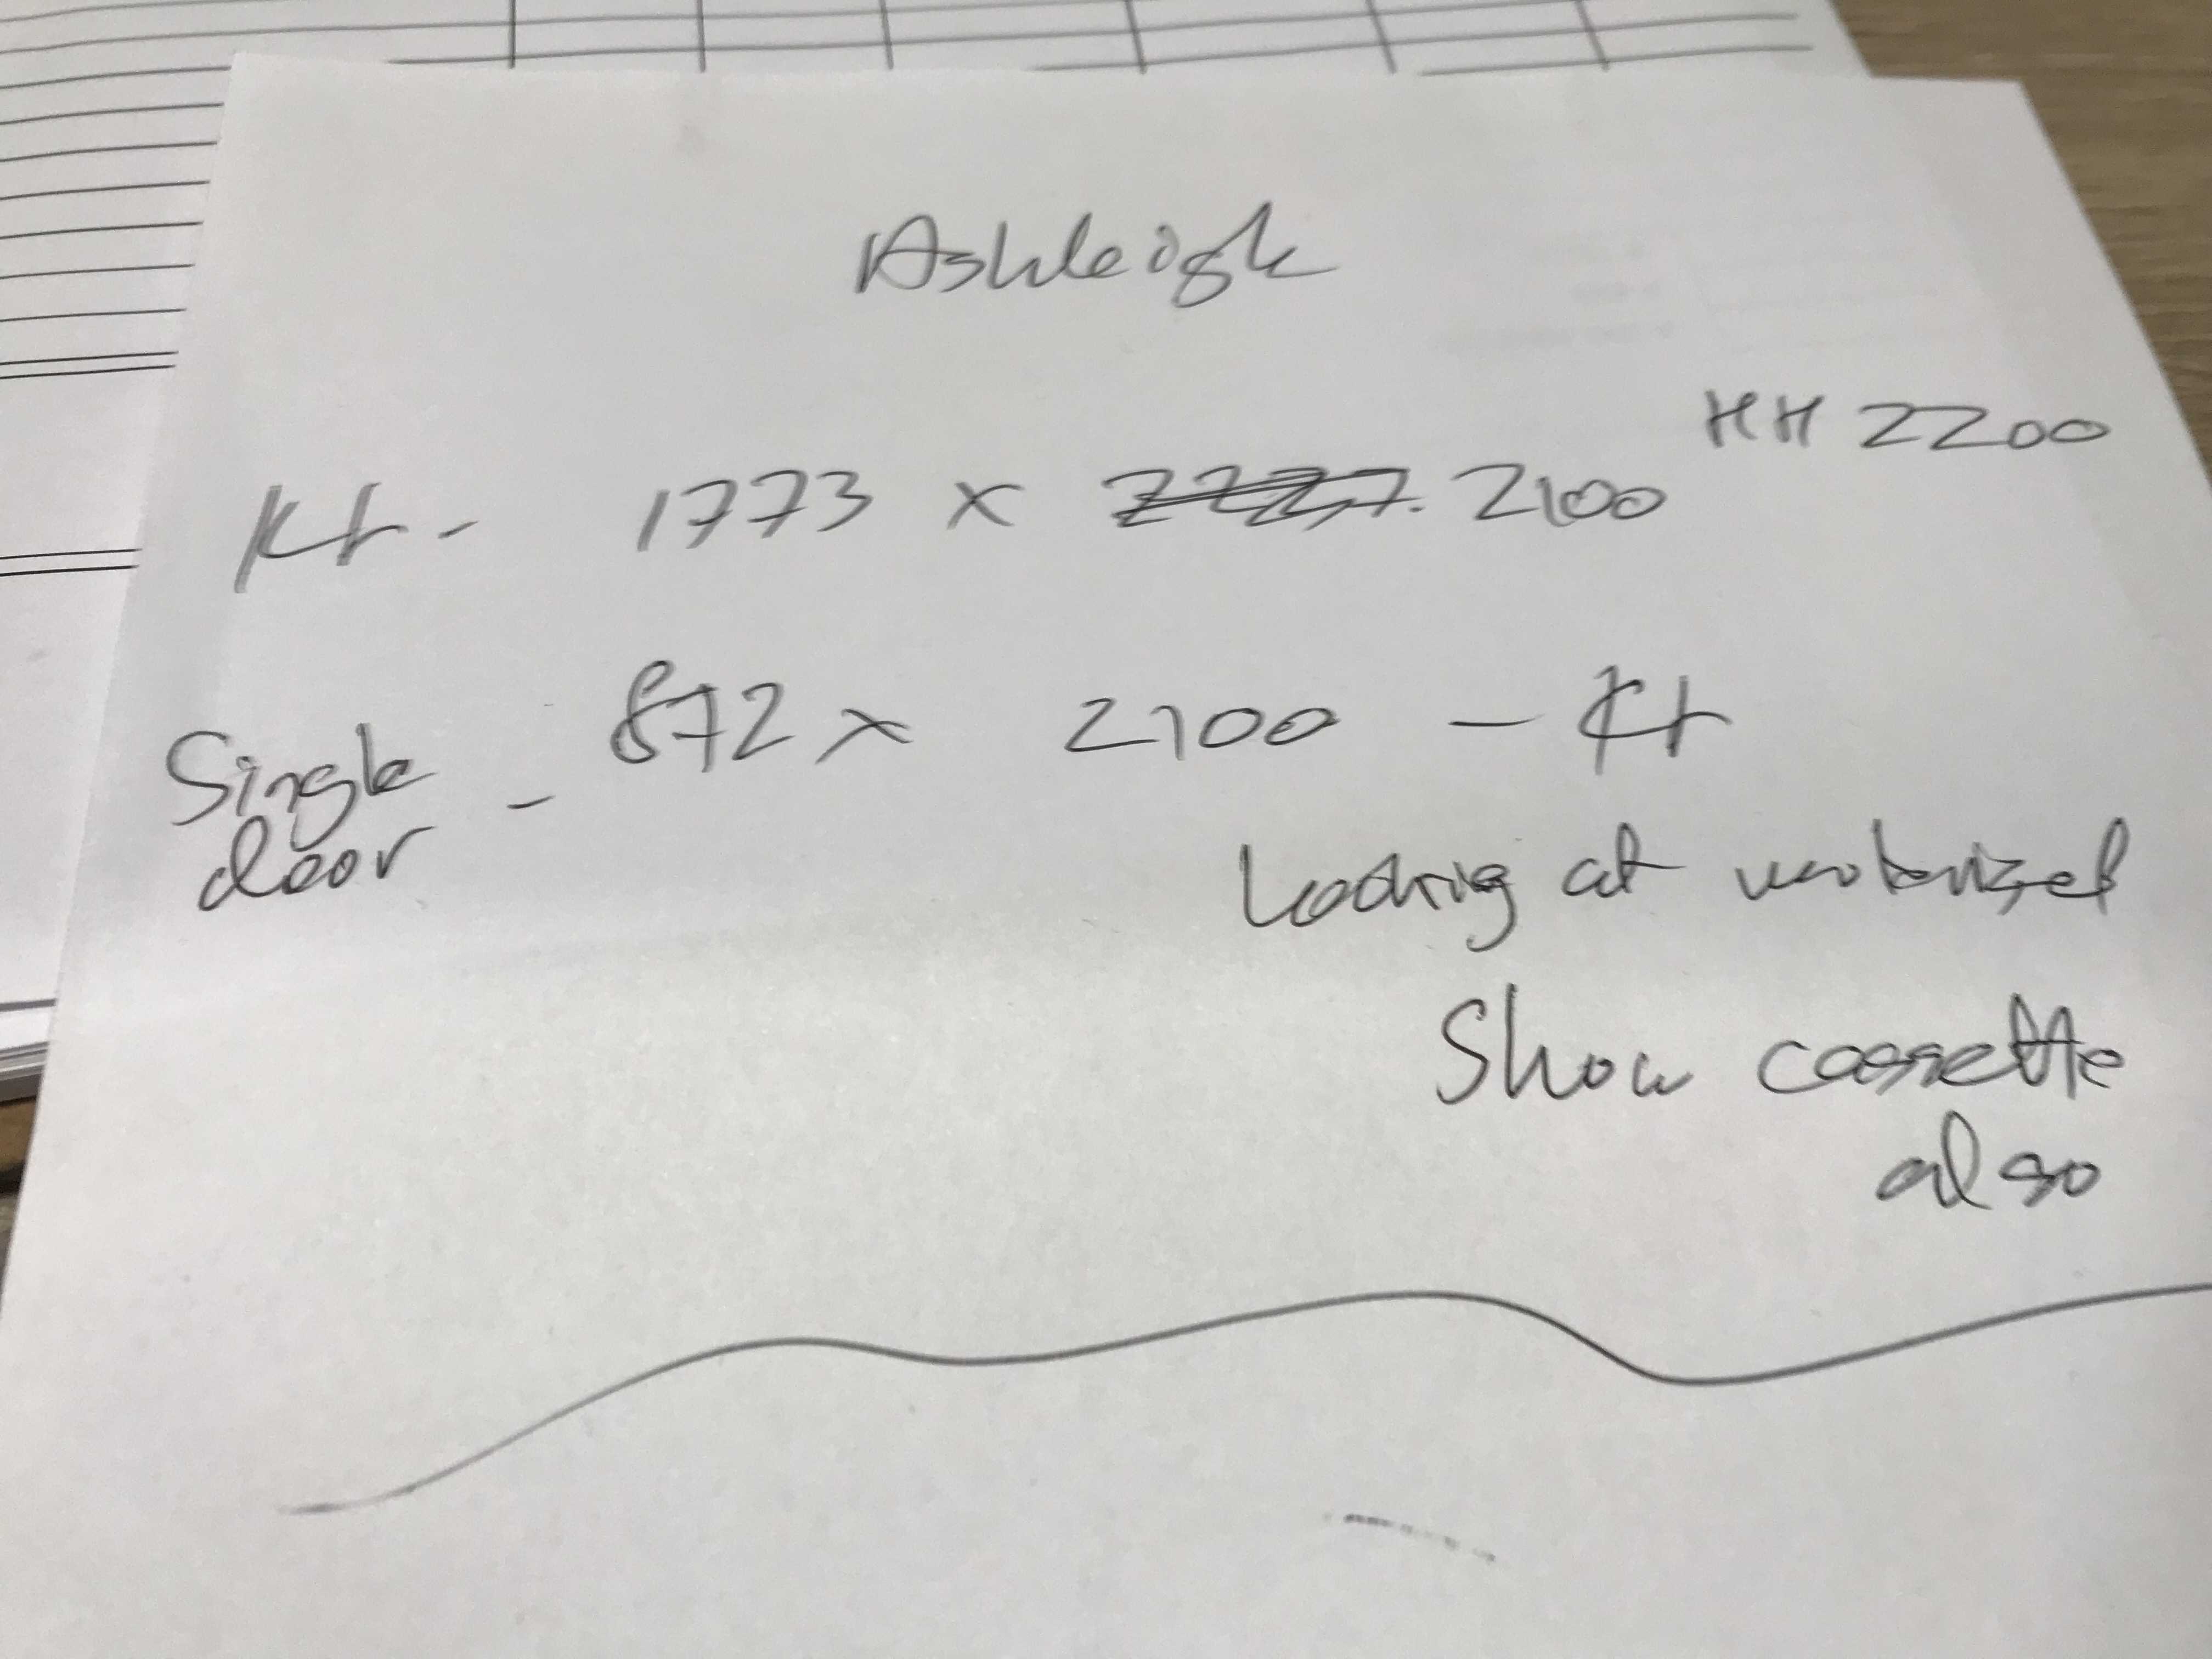 Ashleigh
HH 2200
Kt - 1773 x 2227 2100
Single door - 872 x 2100 - Kt
Looking at motorized
Show cassette
also